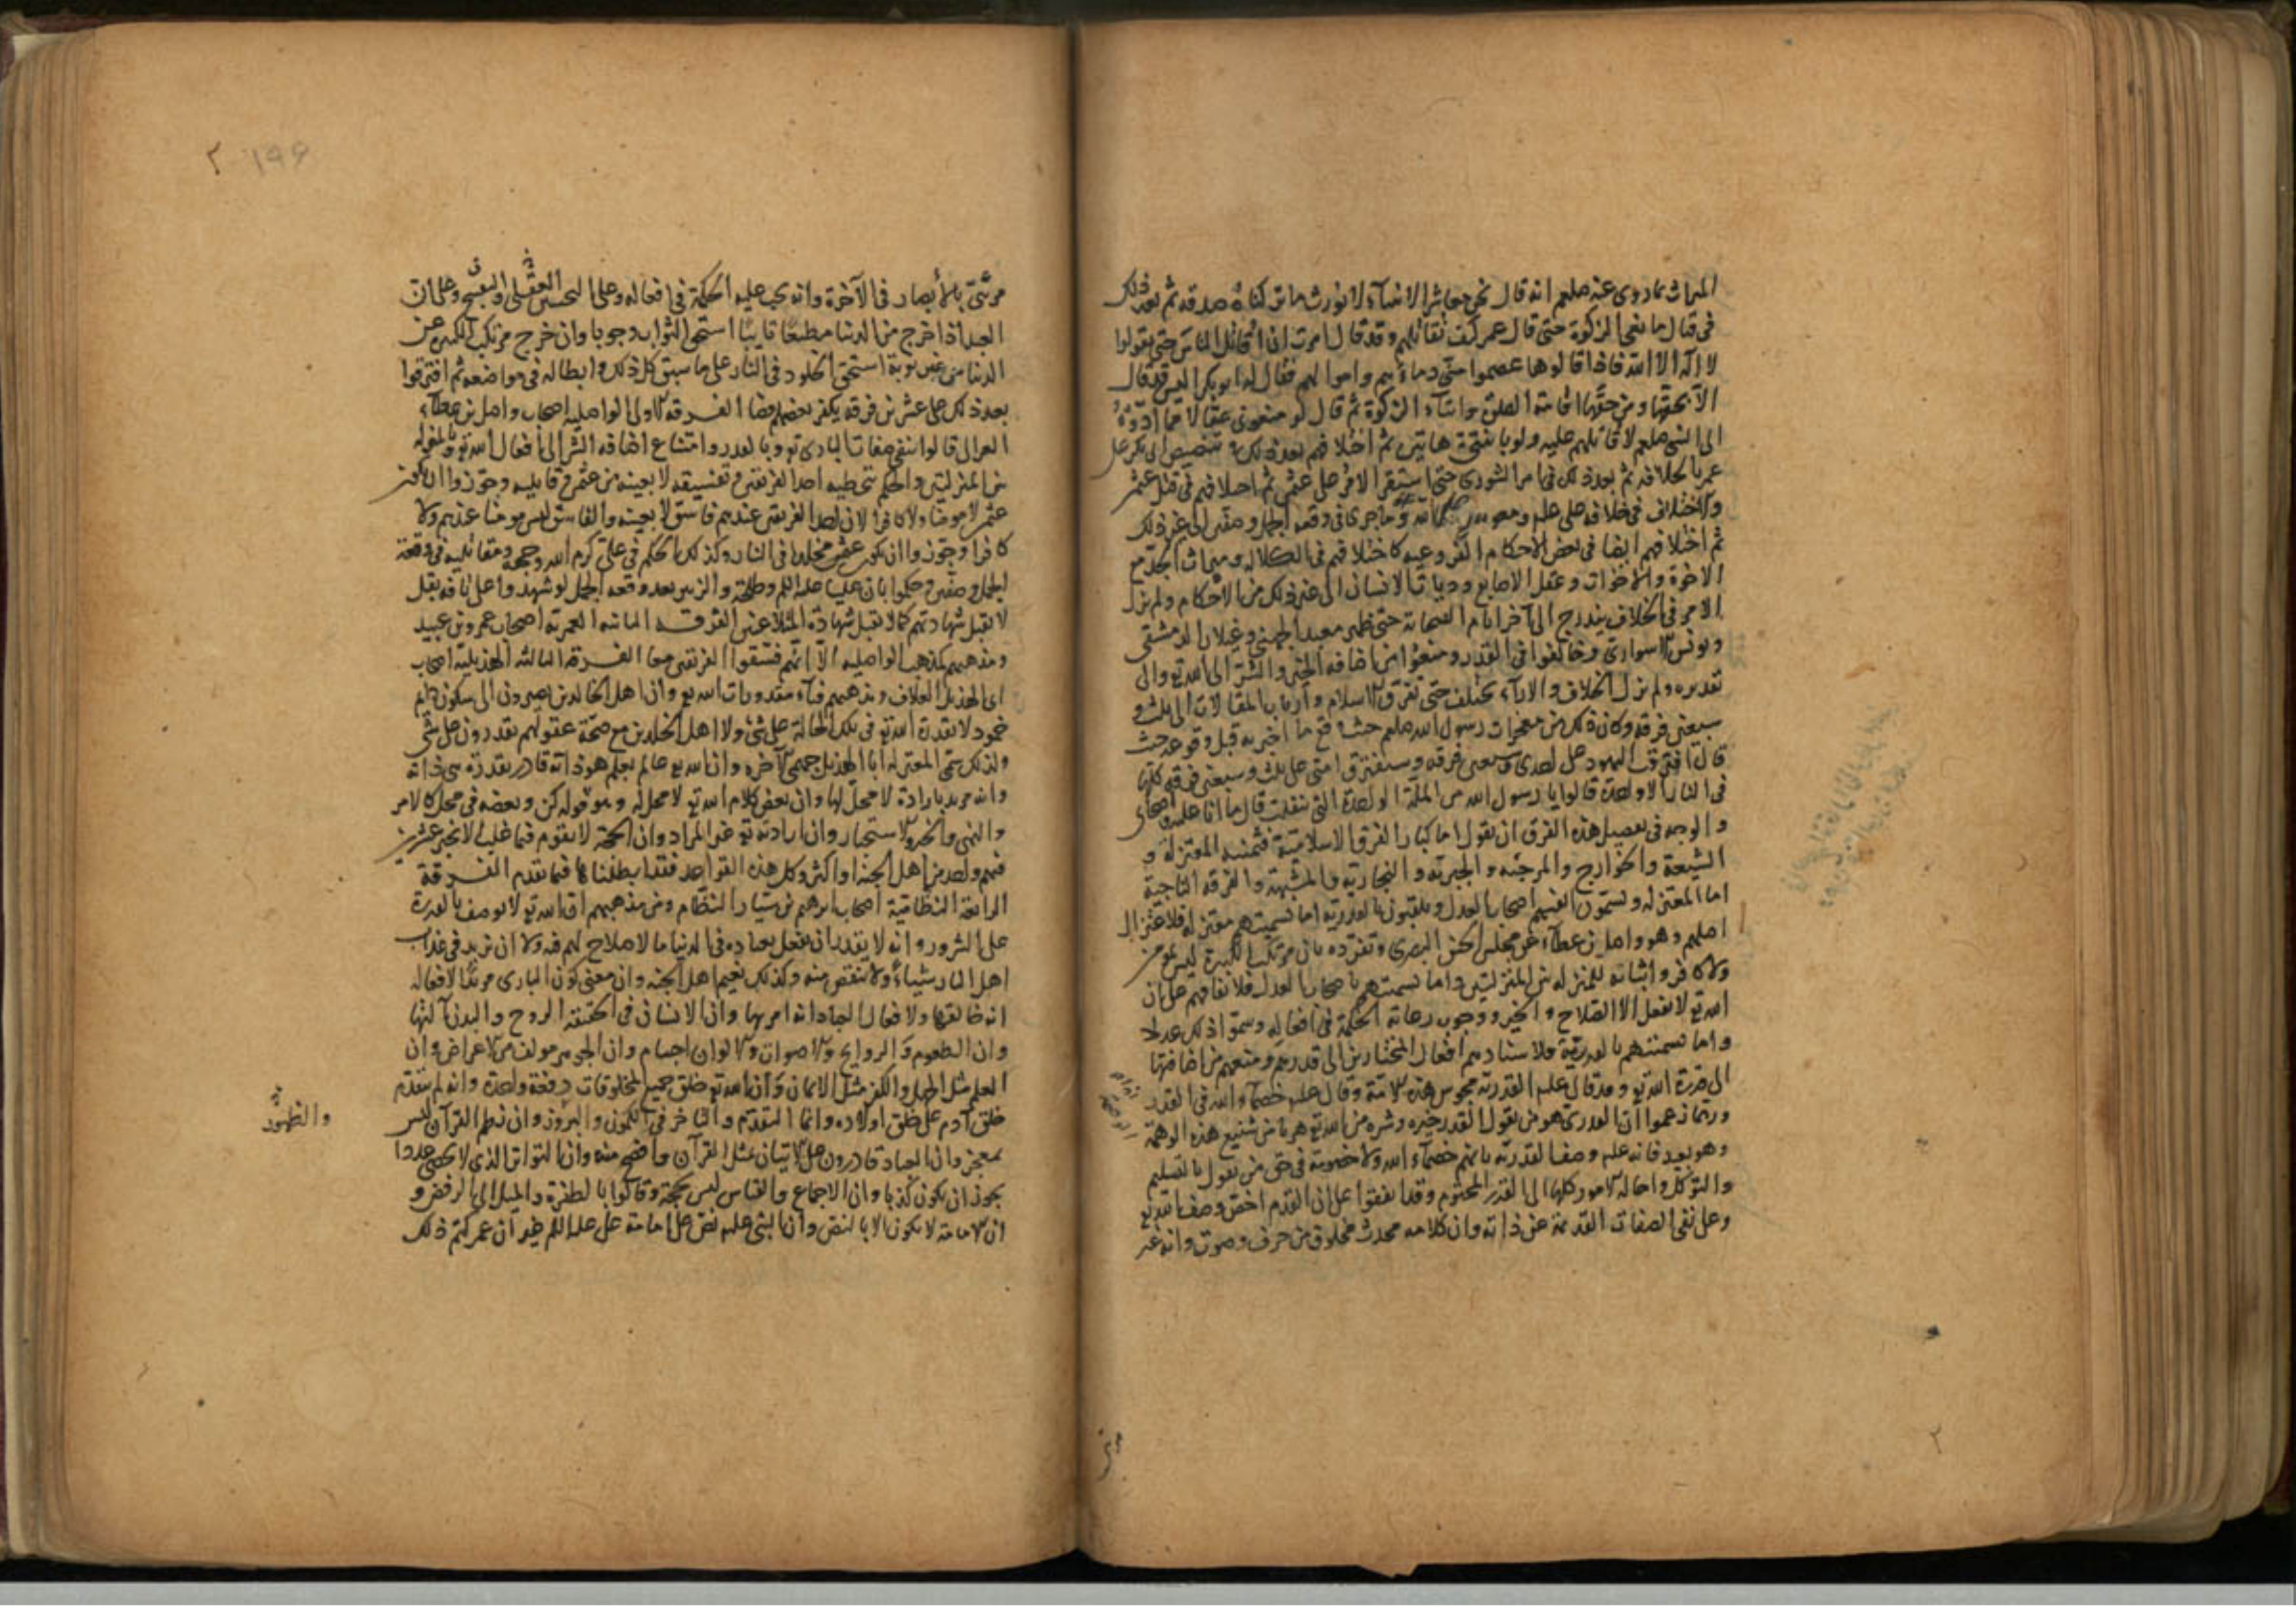 الميراث بما روى عنه صلعم انه قال نحن معاشر الانبياء لا نورث ما تركناه صدقه ثم بعد ذلك
فى قتال مانعى الزكوة حتى قال عمر كيف نقاتلهم وقد قال امرت ان اقاتل الناس حتى يقولوا
لا اله الا الله فاذا قالوها عصموا منى دماءهم واموالهم فقال له ابو بكر اليس قد قال
الا بحقها ومن حقها اقامة الصلوة وايتاء الزكوة ثم قال لو منعونى عقالا مما ادوه
الى النبى صلعم لاقاتلهم عليه ثم اختلافهم بعد ذلك فى تنصيص ابى بكر على
عمر بالخلافه ثم بعد ذلك فى امر الشورى حتى استقر الامر على عثمن ثم اختلافهم فى قتل عثمن
والاختلاف فى خلافه على عليه وما جرى فى وقعه الجمل وصفين الى غير ذلك
ثم اختلافهم ايضا فى بعض الاحكام الفروعيه كاختلافهم فى الكلاله وميراث الجد مع
الاخوة والاخوات وعقل الاصابع وديات الاسنان الى غير ذلك من الاحكام ولم يزل
الامر فى الخلاف يتدرج الى آخر ايام الصحابة حتى ظهر معبد الجهنى وغيلان الدمشقى
ويونس الاسوارى وخالفوا فى القدر ومنعوا من اضافه الخير والشر الى الله تع والى
تقديره ولم يزل الخلاف والاراء تختلف حتى تفرق الاسلام وارباب المقالات الى ثلث و
سبعين فرقه وكان ذلك من معجزات رسول الله صلعم حيث وقع ما اخبر به قبل وقوعه حيث
قال افترقت اليهود على احدى وسبعين فرقه وستفترق امتى على ثلث وسبعين فرقه كلها
فى النار الا واحدة قالوا يا رسول الله من الملة الواحدة التى تنقلت قال ما انا عليه واصحابى
والوجه فى تفصيل هذه الفرق ان نقول اما كبار الفرق الاسلامية فثمنيه المعتزلة و
الشيعة والخوارج والمرجئه والجبريه والنجاريه والمشبهة والفرقه الناجية
اما المعتزله ويسمون انفسهم اصحاب العدل ويلقبون بالقدريه اما تسميتهم معتزله فلاعتزال
اصلهم وهو واصل بن عطاء عن مجلس الحسن البصرى وتفرده بان مرتكب الكبيرة ليس بمؤمن
ولا كافر واثباته للمنزله بين المنزلتين واما تسميتهم باصحاب العدل فلاتفاقهم على ان
الله تع لا يفعل الا الصلاح والخير ووجوب رعاية الحكمة فى افعاله وسموا ذلك عدلا
واما تسميتهم بالقدرية فلاسنادهم افعال المختارين الى قدرهم ومنعهم من اضافتها
الى قدرة الله تع وقد قال عليه القدرية مجوس هذه الامة وقال عليه خصماء الله فى القدر
وربما زعموا ان القدرى هو من يقول القدر خيره وشره من الله تع هربا من شنيع هذه الوصمة
وهو بعيد فانه عليه وصف القدرية بانهم خصماء الله ولا خصومة فى حق من يقول بالتسليم
والتوكل واحالة الامور كلها الى القدر المحتوم وقد اتفقوا على ان القدم اخص وصف الله تع
وعلى نفى الصفات القديمة عن ذاته وان كلامه محدث مخلوق من حرف وصوت وانه غير
مرئى
٢
١٩۶ ٢
مرئى بالأبصار فى الآخرة وانه يجب عليه الحكمة فى افعاله وعلى التحسين العقلى والتقبيح وعلى ان
العبد اذا خرج من الدنيا مطيعا تايبا استحق الثواب وجوبا وان خرج مرتكب الكبيرة عن
الدنيا من غير توبة استحق الخلود فى النار على ما سبق كل ذلك وابطاله فى مواضعه ثم افترقوا
بعد ذلك على عشرين فرقه يكفر بعضهم بعضا الفرقه الاولى الواصليه اصحاب واصل بن عطاء
الغزالى قالوا بنفى صفات البارى تع وبالقدر وامتناع اضافه الشر الى افعال الله تع وبالمنزله
بين المنزلتين والحكم بتخطيه احد الفريقين وتفسيقه لا بعينه من عثمن وقاتليه وجوزوا ان يكون
عثمن لا مومنا ولا كافرا لان احد الفريقين عندهم فاسق لا بعينه والفاسق ليس مومنا عندهم ولا
كافرا وجوزوا ان يكون عثمن مخلدا فى النار وكذلك الحكم فى على كرم الله وجهه ومقاتليه فى وقعة
الجمل وصفين وحكموا بان عليا عليه السلم وطلحة والزبير بعد وقعه الجمل لو شهدوا على باقه بقل
لا تقبل شهادتهم كما لا تقبل شهادة المتلاعنين الفرقه الثانيه العمرية اصحاب عمرو بن عبيد
ومذهبهم كمذهب الواصليه الا انهم فسقوا الفريقين معا الفرقة الثالثه الهذيلية اصحاب
ابى الهذيل العلاف ومذهبهم فناء مقدورات الله تع وان اهل الخالدين يصيرون الى سكون دايم
خمود لا يقدر الله تع فى تلك الحالة على شئ ولا اهل الخلدين مع صحة عقولهم يقدرون على شئ
ولذلك سمى المعتزله ابا الهذيل جهمى الآخره وان الله تع عالم بعلم هو ذاته قادر بقدرة هى ذاته
وانه مريد بارادة لا محل لها وان بعض كلام الله تع لا محل له وهو قوله كن وبعضه فى محل كالامر
والنهى والخبر والاستخبار وان ارادته تع غير المراد وان الحجة لا تقوم فيما غاب الا بخبر عشرين
فيهم واحد من اهل الجنه او اكثر وكل هذه القواعد فقد ابطلناها فيما تقدم الفرقة
الرابعة النظامية اصحاب ابرهيم بن سيار النظام ومن مذهبهم ان الله تع لا يوصف بالقدرة
على الشرور وانه لا يقدر ان يفعل بعباده فى الدنيا ما لا صلاح لهم فيه ولا ان يزيد فى عذاب
اهل النار شياء ولا ينقص منه وكذلك نعيم اهل الجنه وان معنى كون البارى مريدا لافعاله
انه خالقها ولافعال العباد انه امر بها وان الانسان فى الحقيقه الروح والبدن آلتها
وان الطعوم والروايح والاصوات والالوان اجسام وان الجوهر مولف من الاعراض وان
العلم مثل الجهل والكفر مثل الايمان وان الله تع خلق جميع المخلوقات دفعة واحدة وانه لم يتقدم
خلق آدم على خلق اولاده وانما التقدم والتاخر فى الكمون والبروز وان نظم القرآن ليس
والظهور
بمعجز وان العباد قادرون على الاتيان بمثل القرآن وافصح منه وان التواتر الذى لا يحصى عددا
يجوز ان يكون كذبا وان الاجماع والقياس ليس بحجة وقالوا بالطفرة والميل الى الرفض و
ان الامامة لا تكون الا بالنص وان النبى عليه نص على امامة على عليه السلم غير ان عمر كتم ذلك